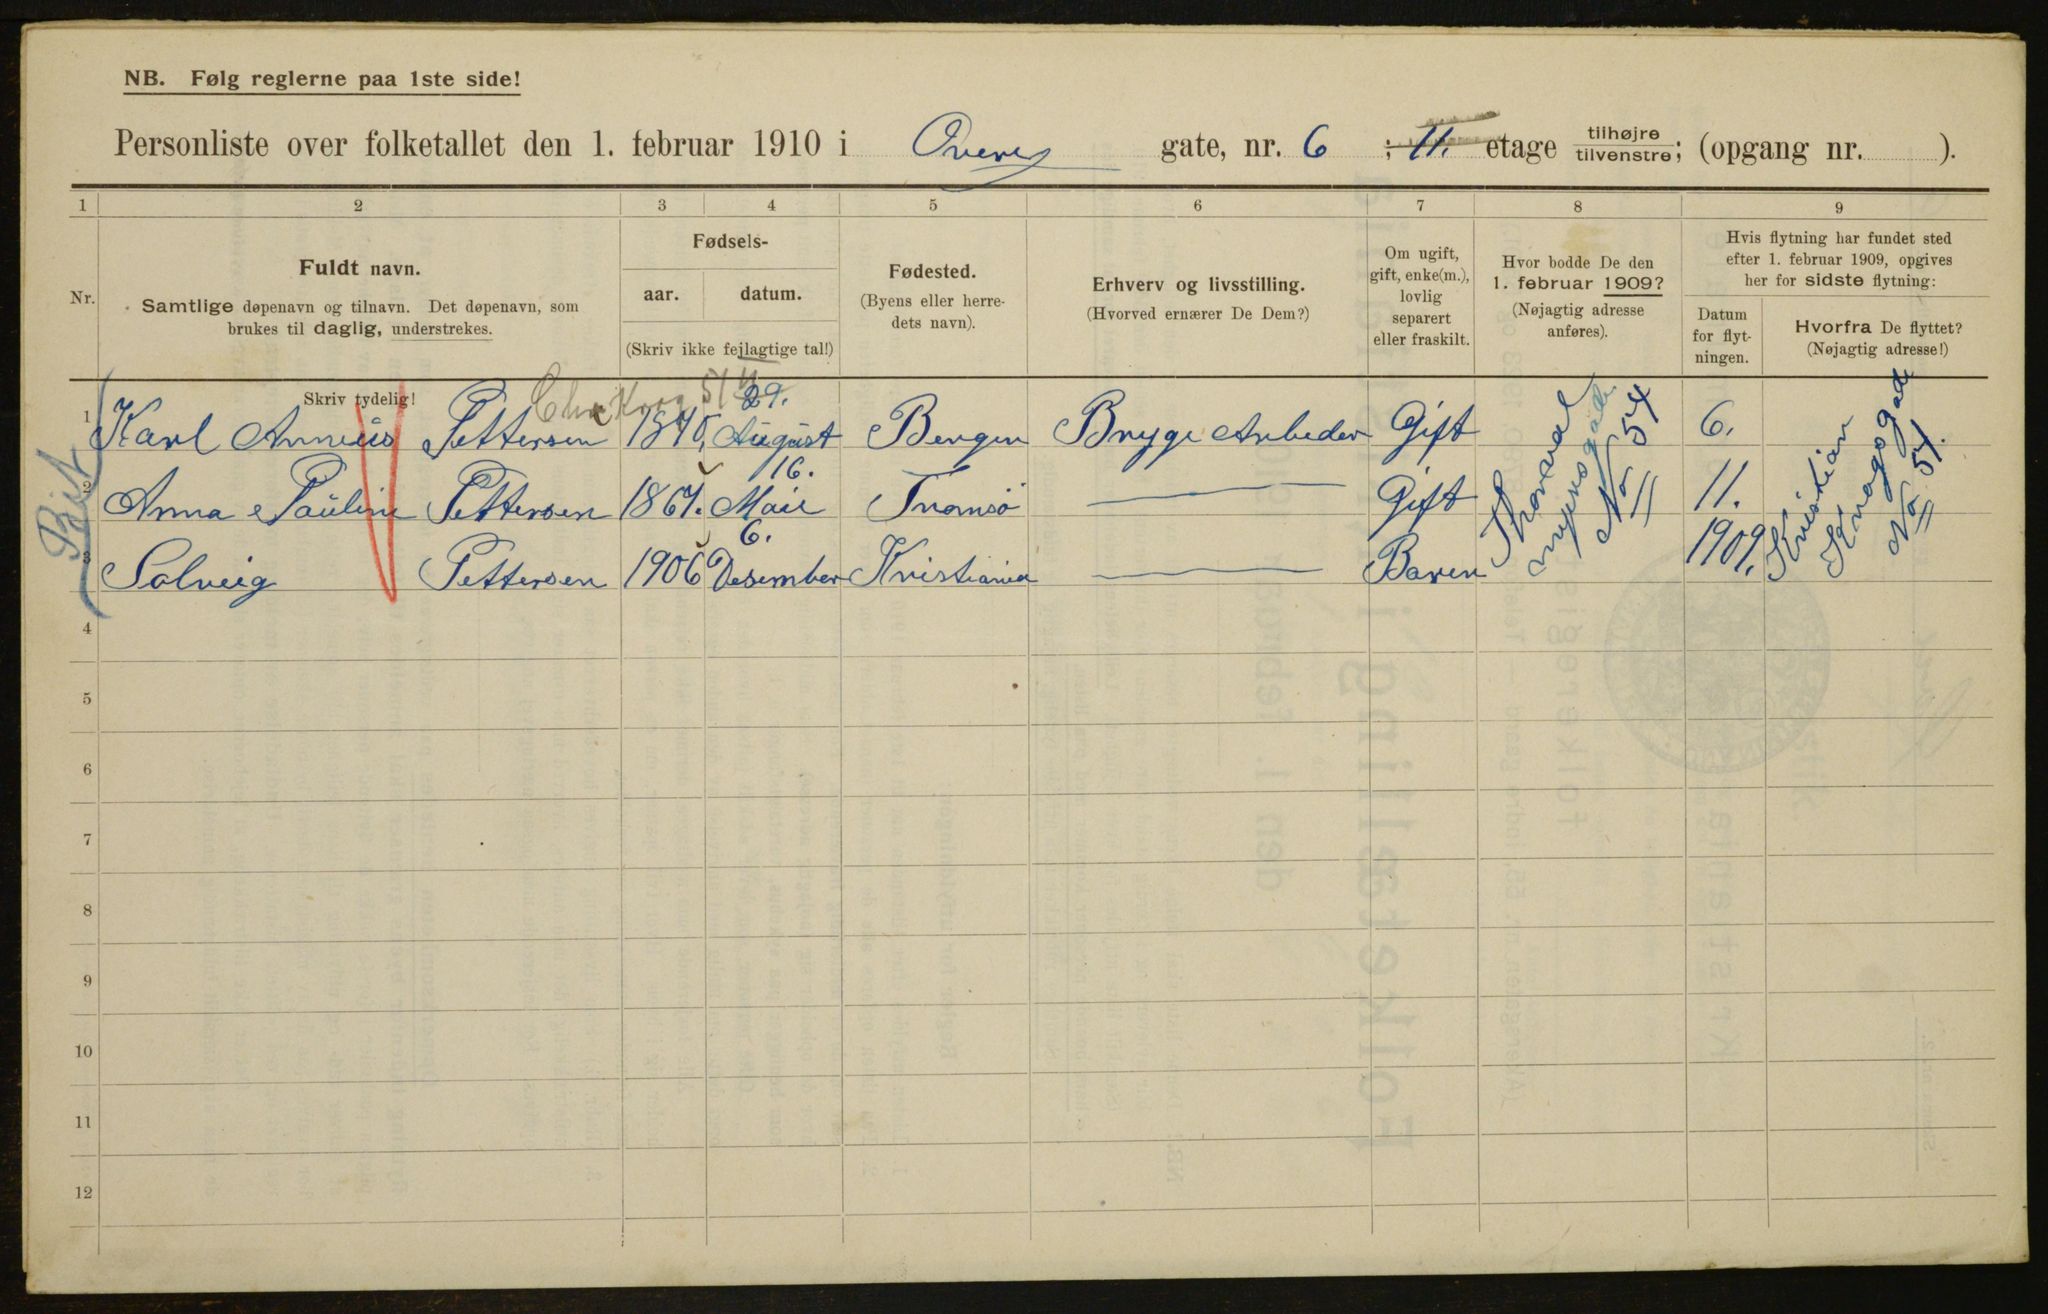 NB. Følg reglerne paa 1ste side!
Personliste over folketallet den 1. februar 1910 i gate, nr. 6 ; 11. etage tilhøjre tilvenstre; (opgang nr. ).
1 2 3 4 5 6 7 8 9
Nr.
Fuldt navn.
Samtlige døpenavn og tilnavn. Det døpenavn, som
brukes til daglig, understrekes.
Fødsels-
aar. datum.
(Skriv ikke fejlagtige tal!)
Fødested.
(Byens eller herre-
dets navn).
Erhverv og livsstilling.
(Hvorved ernærer De Dem?)
Om ugift,
gift, enke(m.),
lovlig
separert
eller fraskilt.
Hvor bodde De den
1. februar 1909?
(Nøjagtig adresse
anføres).
Hvis flytning har fundet sted
efter 1. februar 1909, opgives
her for sidste flytning:
Datum
for flyt-
ningen.
Hvorfra De flyttet?
(Nøjagtig adresse!)
Skriv tydelig!
1 Karl Petterson 29. August Bergen Brygge Arbeder Gift 6.
2 Anna Pauline Petterson 1867. 16. Maii Tromsö Gift 11.
3 Solveig Petterson 1906 6. Desember Kristiania Baren 1909.
Thorvald
myersgade
No 54
Kristian
Krogsgade
No 51.
4
5
6
7
8
9
10
11
12